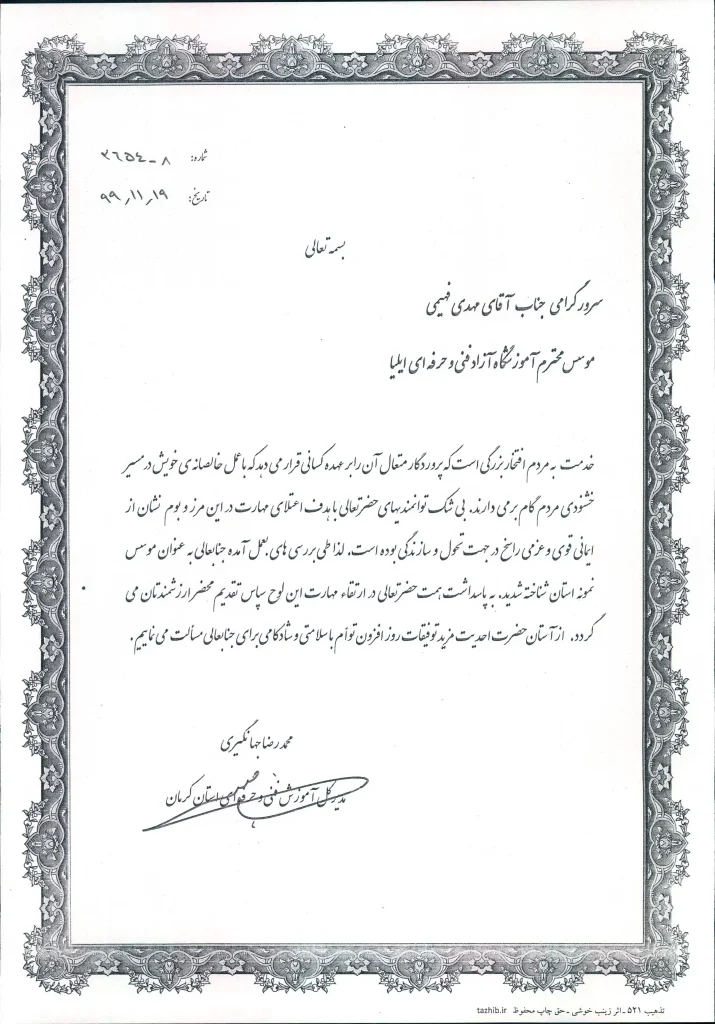 شماره: ۳۶۵۴-۸
تاریخ: ۹۹/۱۱/۱۹
بسمه تعالی
سرور گرامی جناب آقای مهدی فهیمی
موسس محترم آموزشگاه آزاد فنی و حرفه ای ایلیا
خدمت به مردم افتخار بزرگی است که پروردگار متعال آن را بر عهده کسانی قرار می دهد که با عمل خالصانه ی خویش در مسیر
خشنودی مردم گام بر می دارند. بی شک توانمندیهای حضرتعالی با هدف اعتلای مهارت در این مرز و بوم نشان از
ایمانی قوی و عزمی راسخ در جهت تحول و سازندگی بوده است. لذا طی بررسی های بعمل آمده جنابعالی به عنوان موسس
نمونه استان شناخته شدید. به پاسداشت همت حضرتعالی در ارتقاء مهارت این لوح سپاس تقدیم محضر ارزشمندتان می
گردد. از آستان حضرت احدیت مزید توفیقات روز افزون توأم با سلامتی و شادکامی برای جنابعالی مسألت می نماییم.
محمدرضا جهانگیری
مدیرکل آموزش فنی و حرفه ای استان کرمان
تذهیب ۵۲۱ - اثر زینب خوشی - حق چاپ محفوظ tazhib.ir